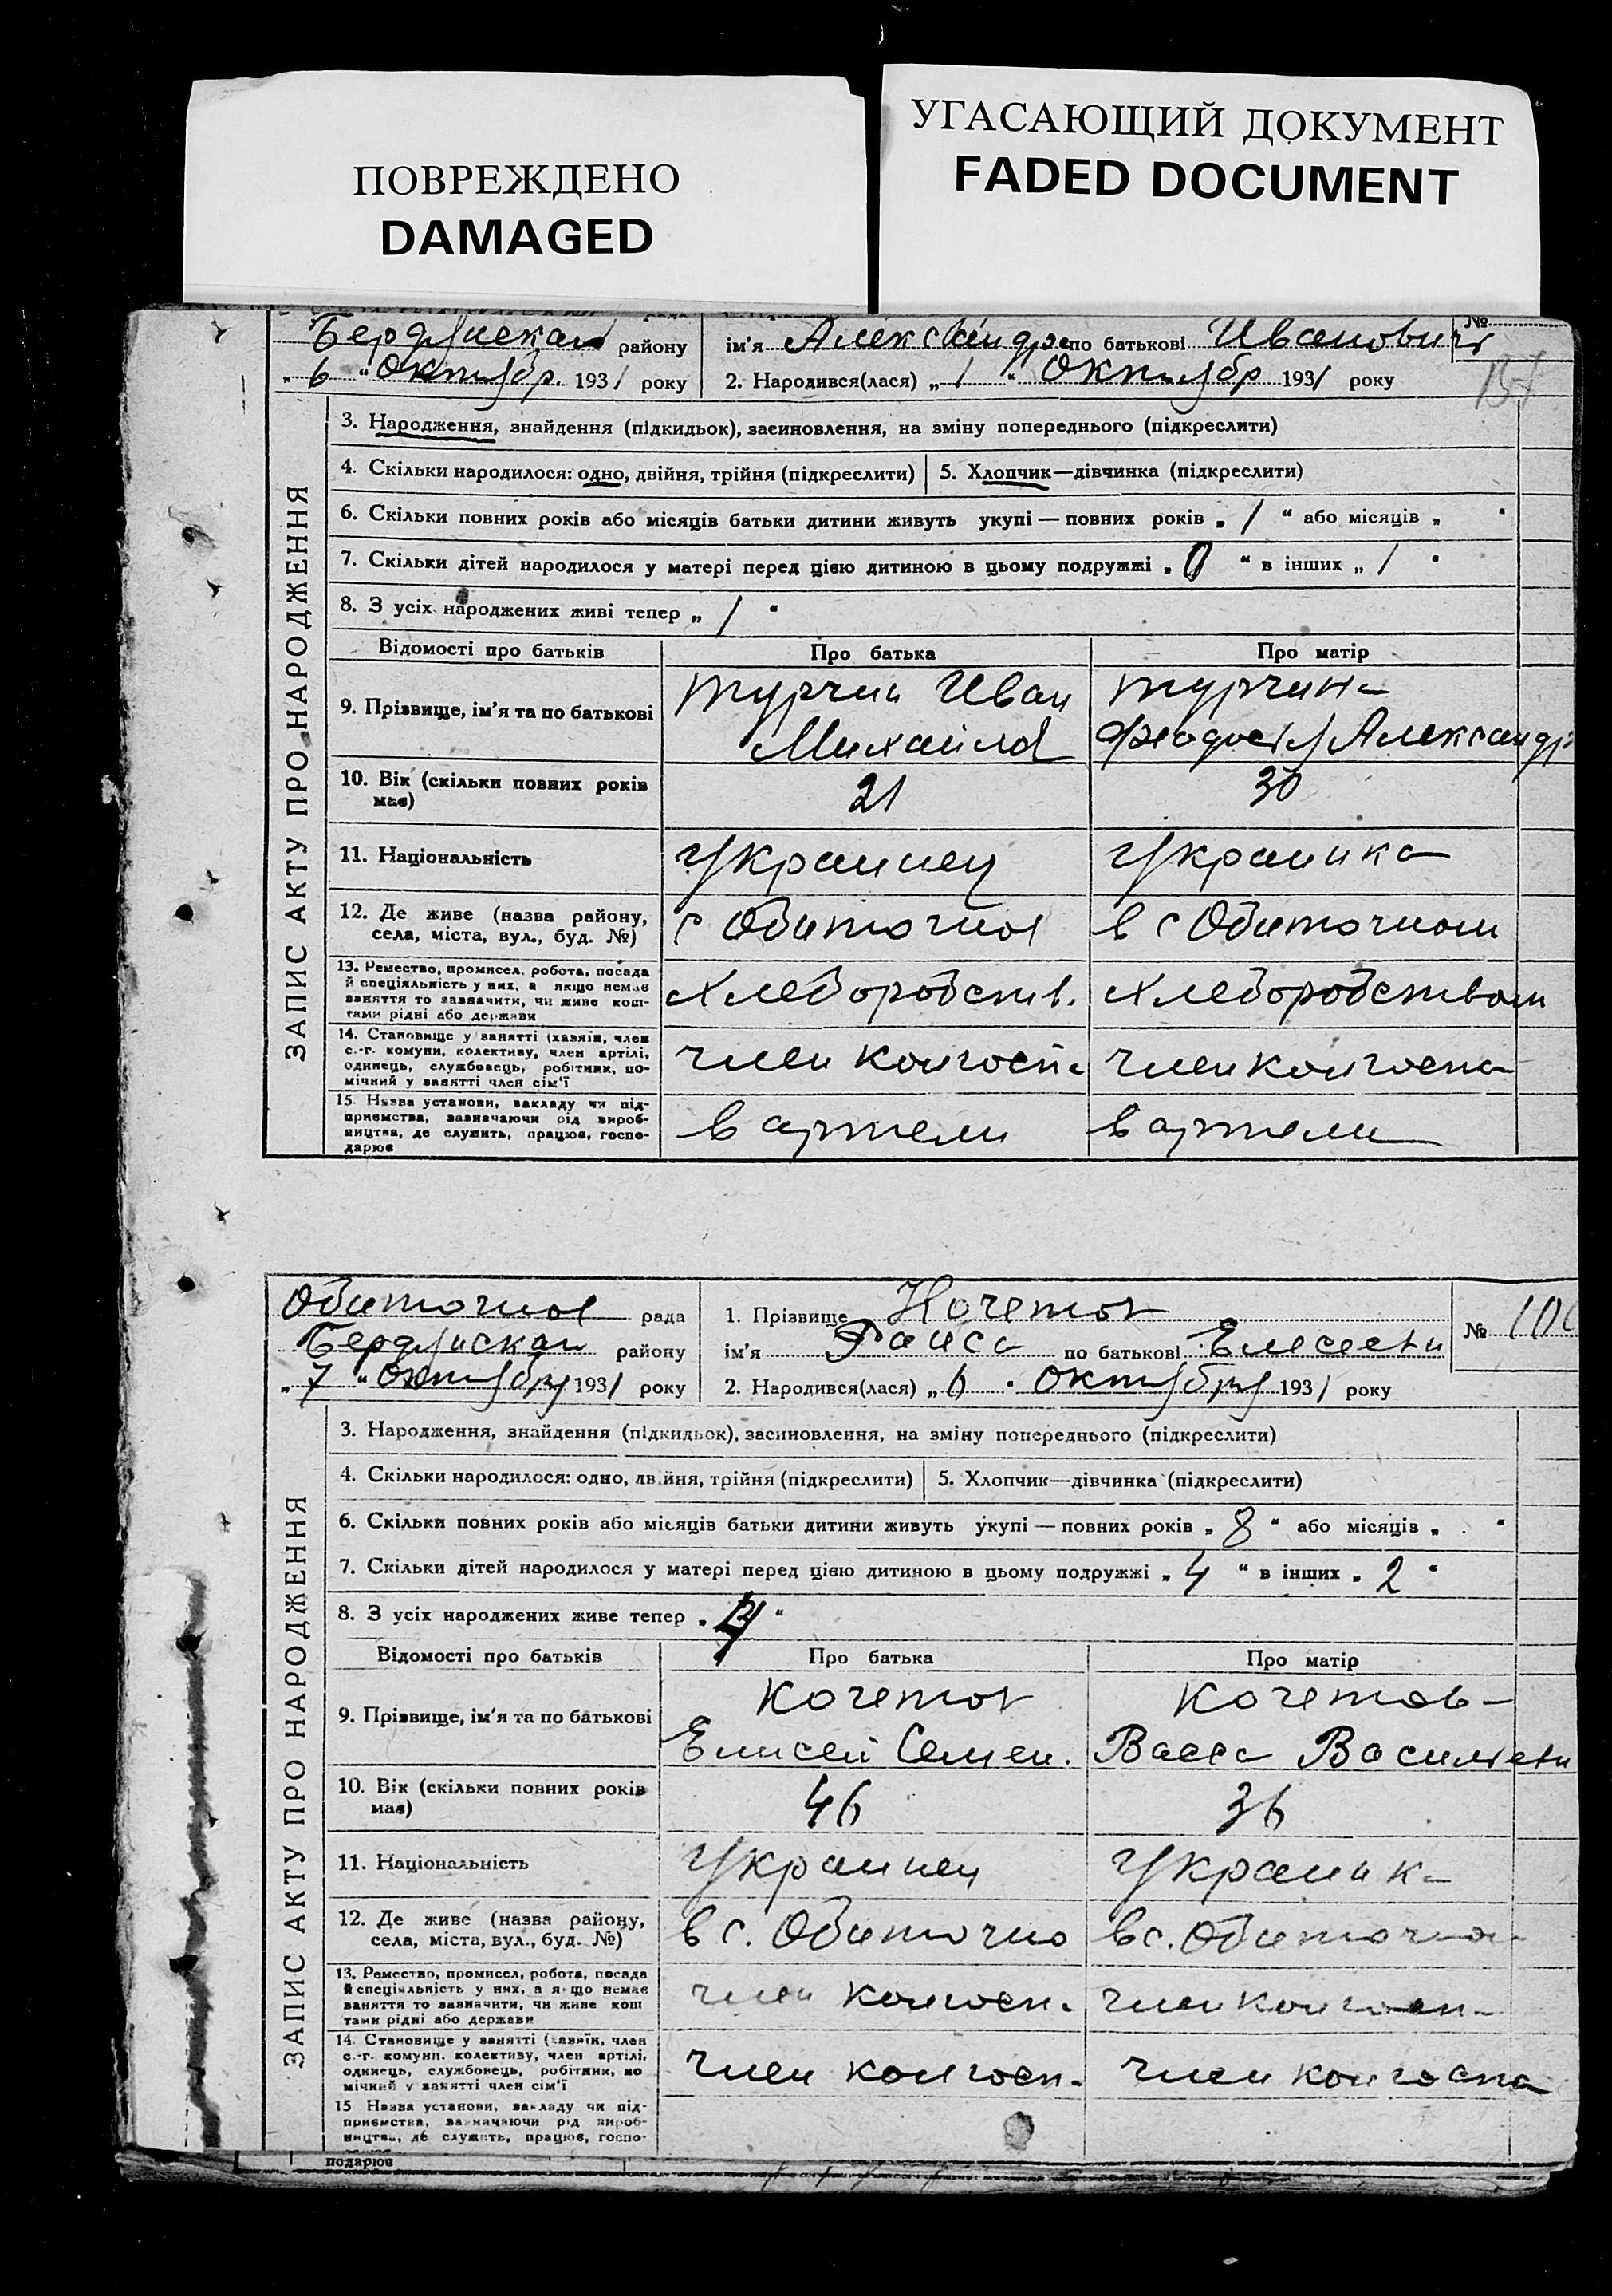 ПОВРЕЖДЕНО
DAMAGED
УГАСАЮЩИЙ ДОКУМЕНТ
FADED DOCUMENT
Бердянскам району ім'я Александр по батькові Иванович №
„ 6 “ Октябр. 1931 року 2. Народився(лася) „ 1 “ Октябр 1931 року
157
ЗАПИС АКТУ ПРО НАРОДЖЕННЯ
3. Народження, знайдення (підкидьок), засиновлення, на зміну попереднього (підкреслити)
4. Скільки народилося: одно, двійня, трійня (підкреслити) 5. Хлопчик—дівчинка (підкреслити)
6. Скільки повних років або місяців батьки дитини живуть укупі — повних років „ 1 “ або місяців „ “
7. Скільки дітей народилося у матері перед цією дитиною в цьому подружжі „ 0 “ в інших „ 1 “
8. З усіх народжених живі тепер „ 1 “
Відомості про батьків Про батька Про матір
9. Прізвище, ім'я та по батькові
Турчин Иван
Михайлов
Турчина
Феодосья Александр
10. Вік (скільки повних років має) 21 30
11. Національність Украинец Украинка
12. Де живе (назва району, села, міста, вул., буд. №) с Обиточное в с Обиточном
13. Ремество, промисел, робота, посада
й спеціяльність у них, а якщо немає
заняття то зазначити, чи живе кош-
тами рідні або держави
Хлебородств. Хлебородством
14. Становище у занятті (хазяїн, член
с.-г. комуни, колективу, член артілі,
одинець, службовець, робітник, по-
мічний у занятті член сім'ї
член колгосп. член колгоспа
15. Назва установи, закладу чи під-
приємства, зазначаючи рід вироб-
ництва, де служить, працює, госпо-
дарює
в артели в артели
Обиточное рада 1. Прізвище Кочетов №
Бердянскам району ім'я Раиса по батькові Елесеевн
„ 7 “ Октября 1931 року 2. Народився(лася) „ 6 “ Октября 1931 року
ЗАПИС АКТУ ПРО НАРОДЖЕННЯ
3. Народження, знайдення (підкидьок), засиновлення, на зміну попереднього (підкреслити)
4. Скільки народилося: одно, двійня, трійня (підкреслити) 5. Хлопчик—дівчинка (підкреслити)
6. Скільки повних років або місяців батьки дитини живуть укупі — повних років „ 8 “ або місяців „ “
7. Скільки дітей народилося у матері перед цією дитиною в цьому подружжі „ 4 “ в інших „ 2 “
8. З усіх народжених живе тепер „ 4 “
Відомості про батьків Про батька Про матір
9. Прізвище, ім'я та по батькові
Кочетов
Елисей Семен.
Кочетов
Васса Васильевн
10. Вік (скільки повних років має) 46 36
11. Національність Украинец Украинк
12. Де живе (назва району, села, міста, вул., буд. №) в с. Обиточно в с. Обиточном
13. Ремество, промисел, робота, посада
й спеціяльність у них, а якщо немає
заняття то зазначити, чи живе кош
тами рідні або держави
член колгосп. член колгосп.
14. Становище у занятті (хазяїн, член
с.-г. комуни, колективу, член артілі,
одинець, службовець, робітник, по
мічний у занятті член сім'ї
член колгосп. член колгоспа
15 Назва установи, закладу чи під-
приємства, зазначаючи рід вироб-
ництва, де служить, працює, госпо-
подарює